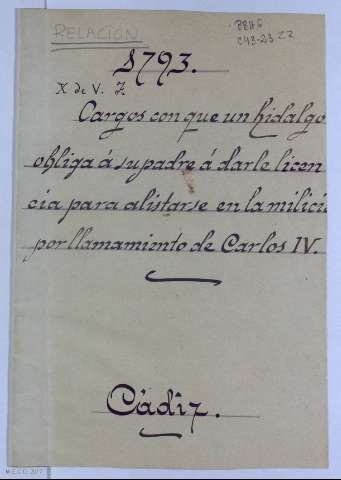 RELACION
BBHG
C43-23 22
1793.
X de V. Z
Cargos con que un hidalgo
obliga á su padre á darle licen
cia para alistarse en la milici
por llamamiento de Carlos IV.
Cádiz.
M.E.C.D. 2017